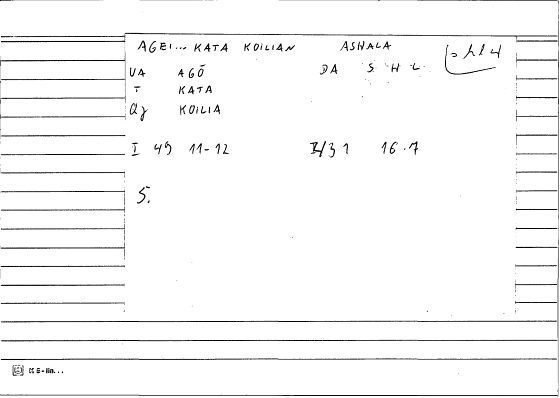 AGEI... KATA KOILIAN ASHALA
VA AGŌ DA S H L
T KATA
Qz KOILIA
I 49 11-12 II/31 16.7
5.